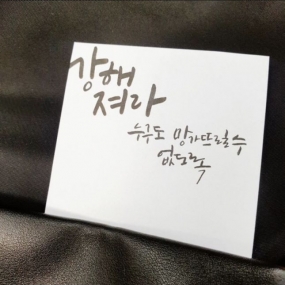 강해
져라
누구도 망가뜨릴 수
없도록